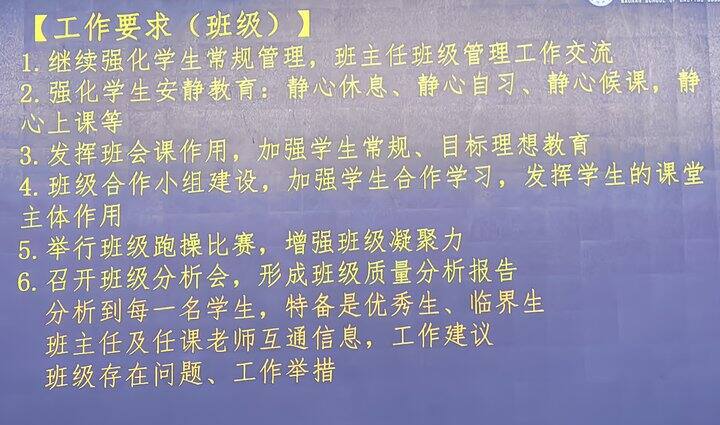 【工作要求（班级）】
1. 继续强化学生常规管理，班主任班级管理工作交流
2. 强化学生安静教育：静心休息、静心自习、静心候课，静
心上课等
3. 发挥班会课作用，加强学生常规、目标理想教育
4. 班级合作小组建设，加强学生合作学习，发挥学生的课堂
主体作用
5. 举行班级跑操比赛，增强班级凝聚力
6. 召开班级分析会，形成班级质量分析报告
分析到每一名学生，特备是优秀生、临界生
班主任及任课老师互通信息，工作建议
班级存在问题、工作举措